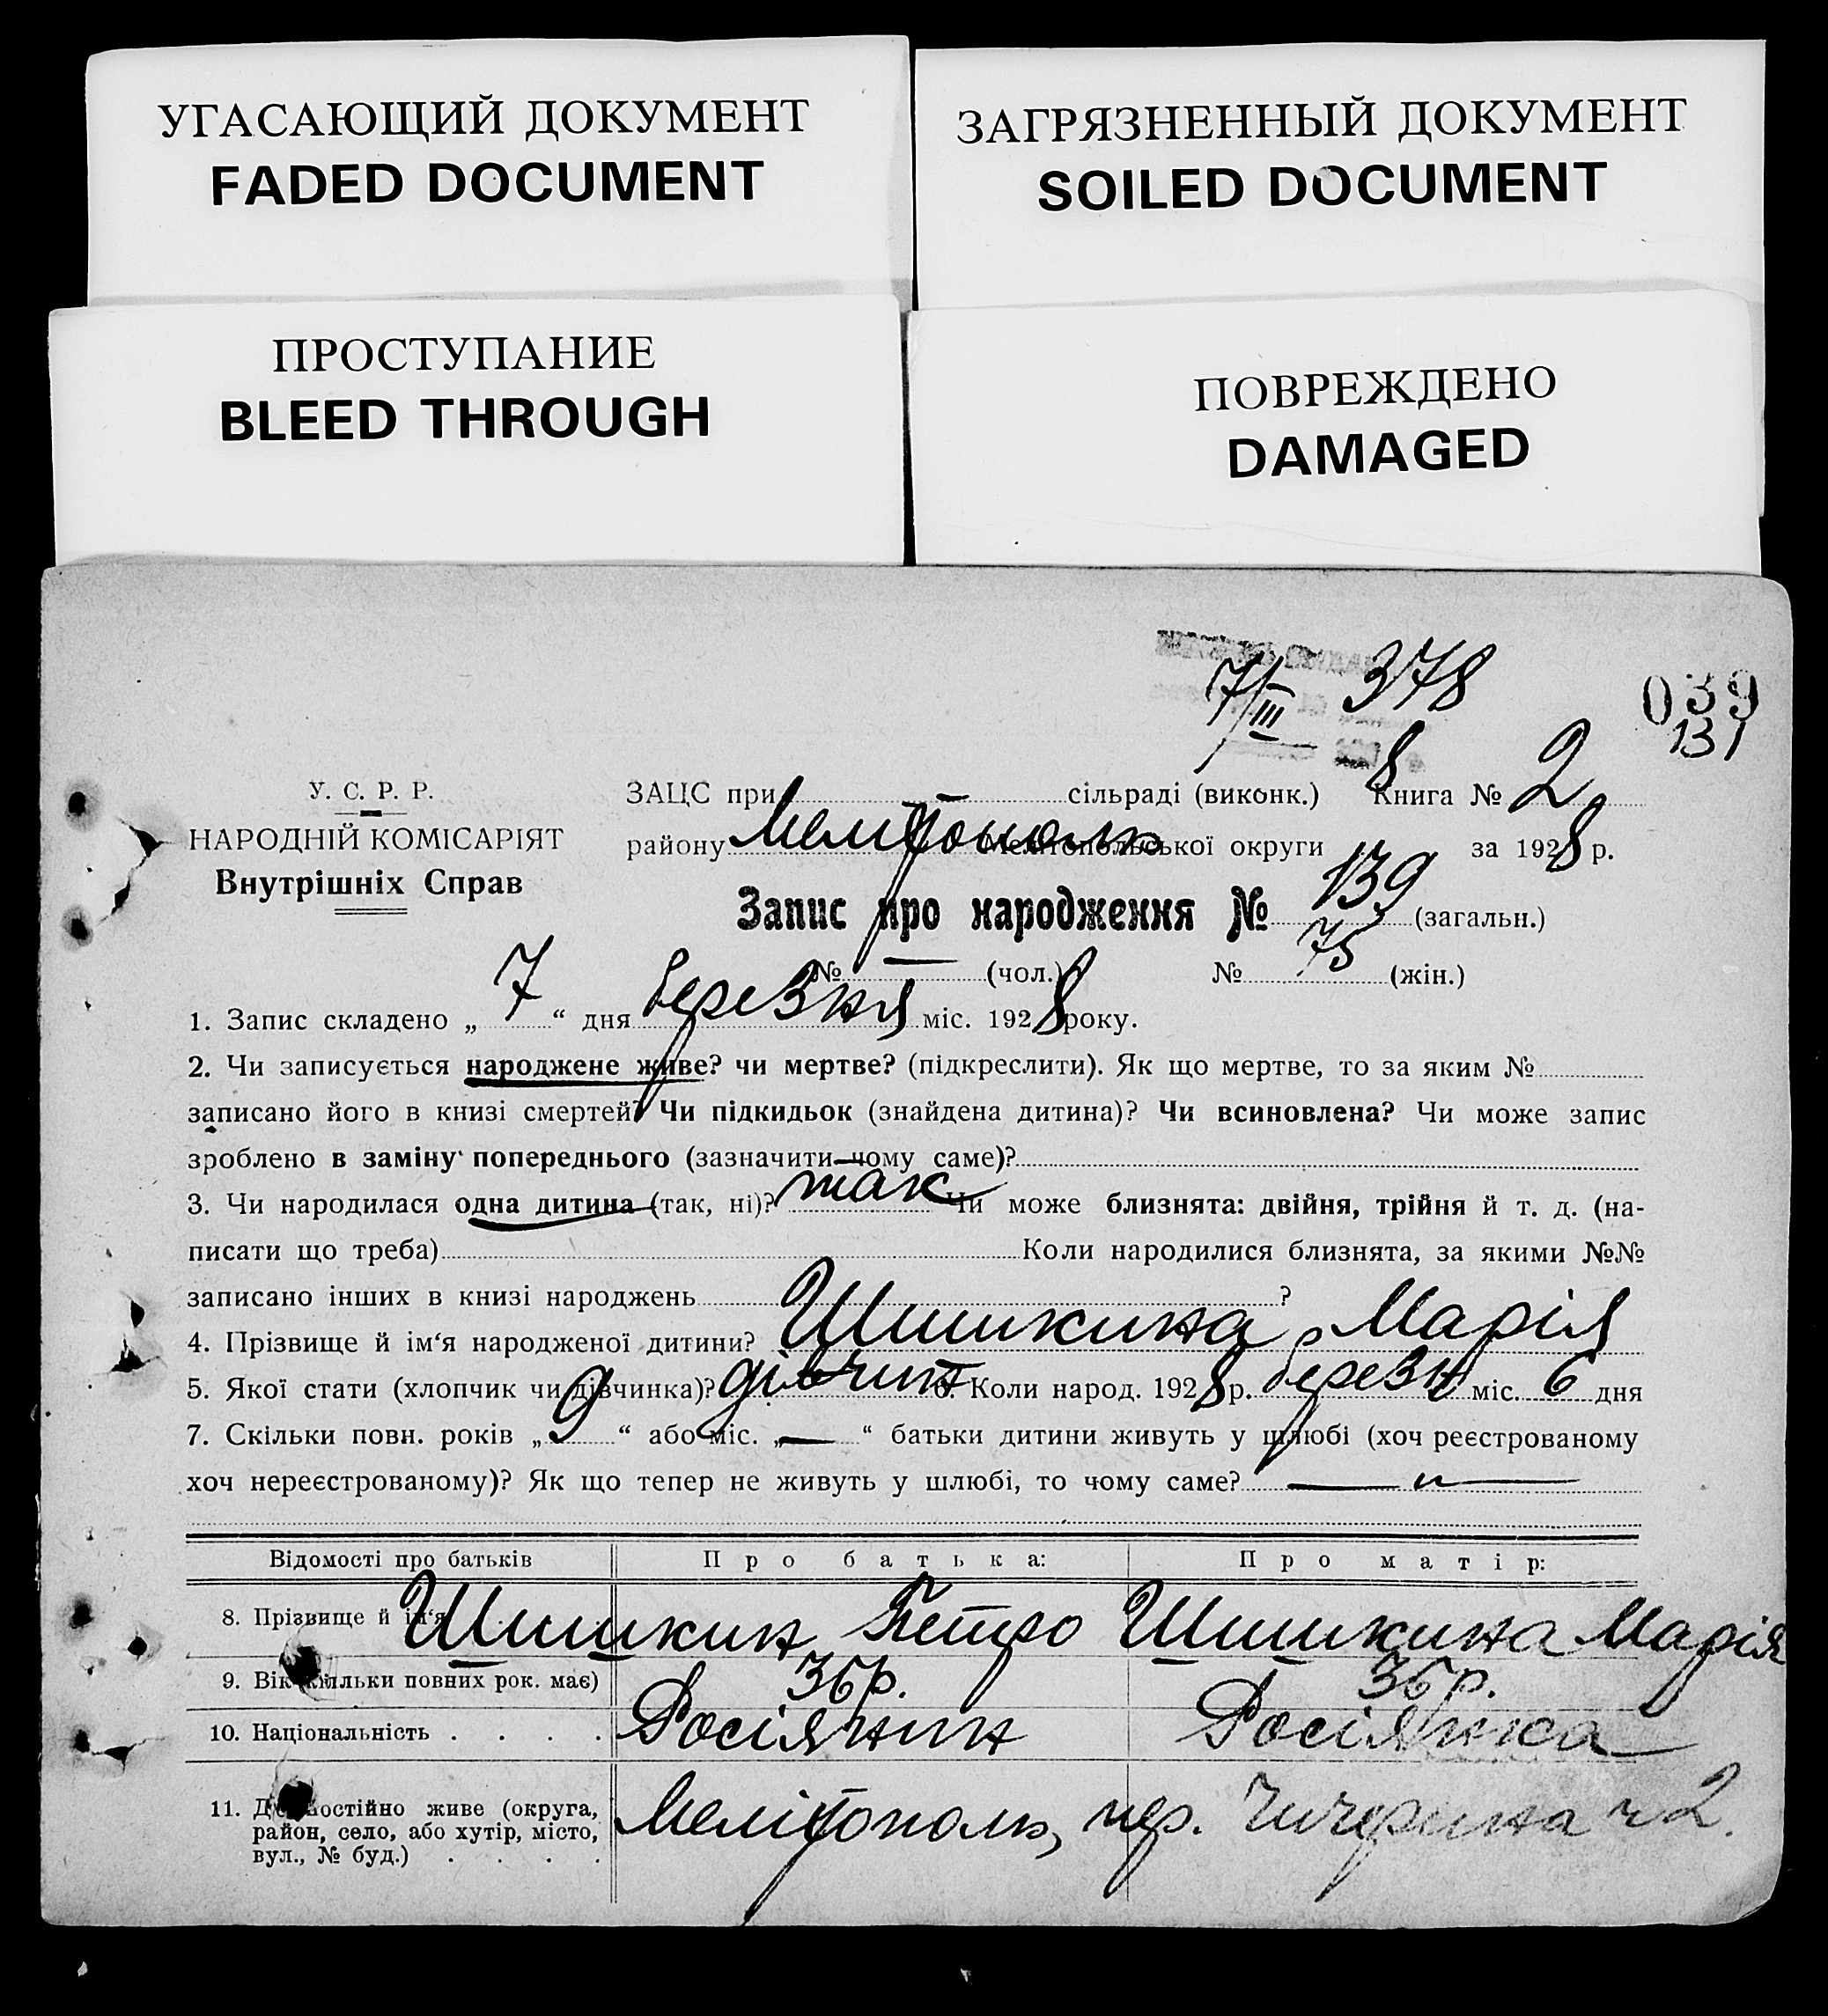 УГАСАЮЩИЙ ДОКУМЕНТ
FADED DOCUMENT
ЗАГРЯЗНЕННЫЙ ДОКУМЕНТ
SOILED DOCUMENT
ПРОСТУПАНИЕ
BLEED THROUGH
ПОВРЕЖДЕНО
DAMAGED
7/III 378
039
131
У. С. Р. Р.
НАРОДНІЙ КОМІСАРІЯТ
Внутрішніх Справ
ЗАЦС при сільраді (виконк.) Книга № 2
району Мелітополь Мелітопольської округи за 1928 р.
Запис про народження № 139 (загальн.)
№ — (чол.) № 75 (жін.)
1. Запис складено „ 7 “ дня березня міс. 1928 року.
2. Чи записується народжене живе? чи мертве? (підкреслити). Як що мертве, то за яким №
записано його в книзі смертей? Чи підкидьок (знайдена дитина)? Чи всиновлена? Чи може запис
зроблено в заміну попереднього (зазначити чому саме)?
3. Чи народилася одна дитина (так, ні)? так Чи може близнята: двійня, трійня й т. д. (на-
писати що треба) Коли народилися близнята, за якими №№
записано інших в книзі народжень ?
4. Прізвище й ім‘я народженої дитини? Шишкина Марія
5. Якої стати (хлопчик чи дівчинка)? дівчина 6. Коли народ. 1928 р. березня міс. 6 дня
7. Скільки повн. років „ 9 “ або міс. „ — “ батьки дитини живуть у шлюбі (хоч реєстрованому
хоч нереєстрованому)? Як що тепер не живуть у шлюбі, то чому саме? — „ —
Відомості про батьків Про батька: Про матір:
8. Прізвище й ім‘я Шишкин Петро Шишкина Марія
9. Вік скільки повних рок. має) 36 р. 36 р.
10. Національність . . . . Росіянин Росіянка
11. Де постійно живе (округа,
район, село, або хутір, місто,
вул., № буд.) . . . .
Мелітополь, пер. Чичерина ч 2.